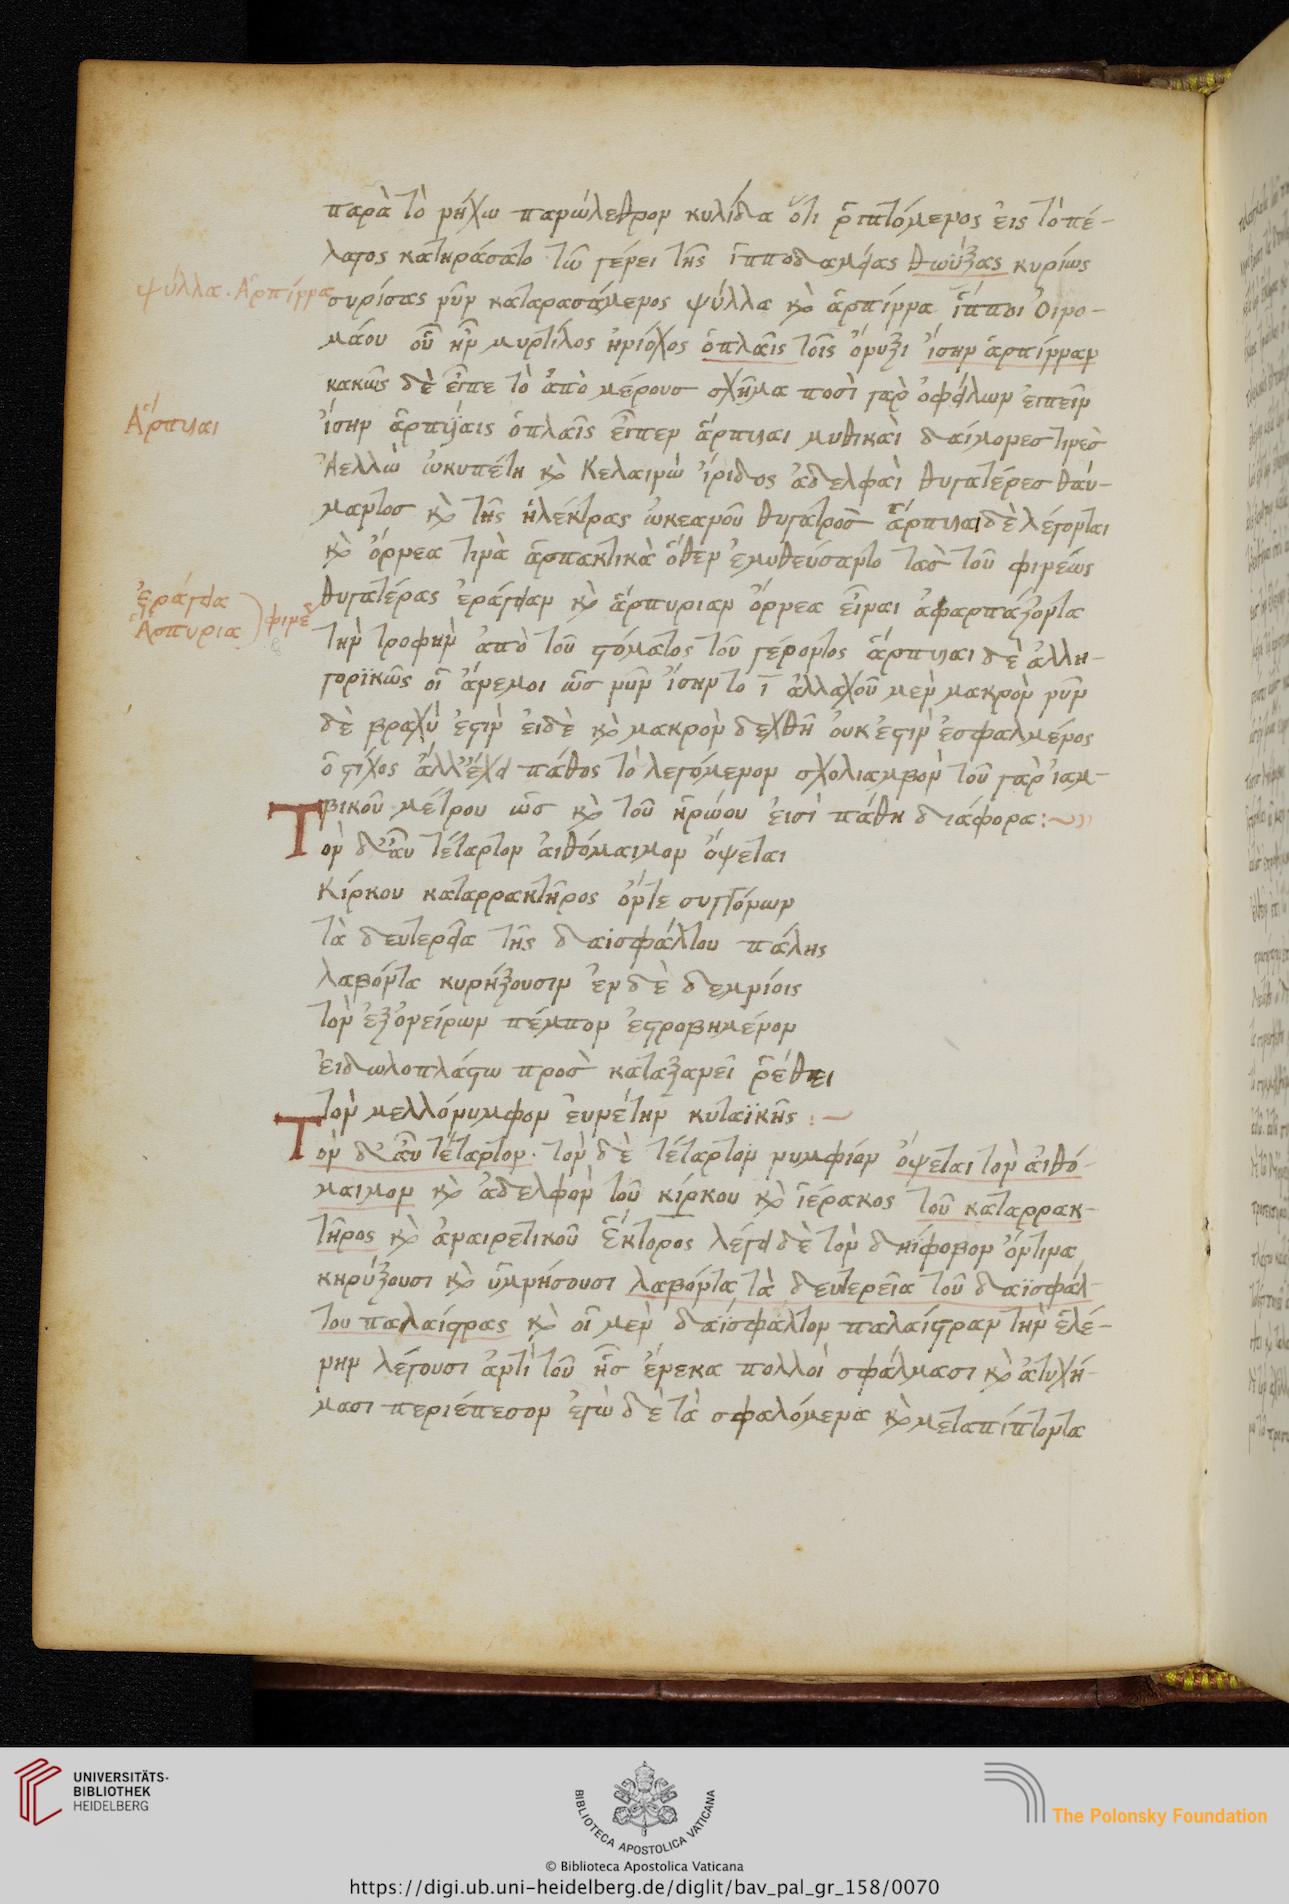 παρὰ τὸ νήχω πανώλεθρον κυλίδια ὅτι ῥιπτόμενος εἰς τὸ πέ-
λαγος κατηράσατο τῶ γένει τῆς ἱπποδαμείας θωΰξας κυρίως
ψύλλα. Ἅρπιννα
συρίσας νῦν καταρασάμενος ψύλλα κὸ ἅρπιννα ἵπποι Οἰνο-
μάου οὗ ἦν μυρτίλος ἡνιόχος ὁπλαῖς τοῖς ὄνυξι ἴσην ἁρπίνναν
κακῶς δὲ εἶπε τὸ ἀπὸ μέρους σχῆμα ποσὶ γὰρ ὀφείλων εἰπεῖν
Ἅρπυιαι
ἴσην ἁρπυίαις ὁπλαῖς εἶπεν ἅρπυιαι μυθικαὶ δαίμονες τινὲς
Ἀελλὼ ὠκυπέτη κὸ Κελαινὼ ἴριδος ἀδελφαὶ θυγατέρες θαύ-
μαντος κὸ τῆς ἠλέκτρας ὠκεανοῦ θυγατρὸς ἅρπυιαι δὲ λέγονται
κὸ ὄρνεα τινὰ ἁρπακτικὰ ὅθεν ἐμυθεύσαντο τὰς τοῦ φινέως
ἐράγεια
Ἅρπυρια
φινέ
θυγατέρας ἐράγειαν κὸ ἅρπυριαν ὄρνεα εἶναι ἀφαρπάζοντα
τὴν τροφὴν ἀπὸ τοῦ στόματος τοῦ γέροντος ἅρπυιαι δὲ ἀλλη-
γορϊκῶς οἱ ἄνεμοι ὡς νῦν ἴσην το ι ἀλλαχοῦ μεν μακρὸν νῦν
δὲ βραχὺ ἐστὶν εἰδὲ κὸ μακρὸν δεχθῆ οὐκ ἐστὶν ἐσφαλμένος
ὁ στίχος ἀλλ' ἔχει πάθος τὸ λεγόμενον σχολιαμβον τοῦ γὰρ ἰαμ-
βικοῦ μέτρου ὡς κὸ τοῦ ἡρώου εἰσὶ πάθη διάφορα:~
Τὸν δ' αὖ τέταρτον αἰθόμαιμον ὄψεται
Κίρκου καταρρακτῆρος ὄντε συγγόνων
τὰ δευτερεῖα τῆς δαϊσφάλτου πάλης
λαβόντα κυρήξουσιν ἐν δὲ δεμνίοις
τὸν ἐξ ὀνείρων πέμπον ἐστροβημένον
εἰδωλοπλάστω προς καταξανεῖ ῥέθει
τὸν μελλόνυμφον εὐνέτην κυταϊκῆς :~
Τὸν δ' αὖ τέταρτον. τὸν δὲ τέταρτον νυμφίον ὄψεται τὸν αἰθό-
μαιμον κὸ ἀδελφὸν τοῦ κίρκου κὸ ἱέρακος τοῦ καταρρακ-
τῆρος κὸ ἀναιρετικοῦ Ἕκτορος λέγει δὲ τὸν δηΐφοβον ὅντινα
κηρύξουσι κὸ ὑμνήσουσι λαβόντα τὰ δευτερεῖα τοῦ δαϊσφάλ-
του παλαίστρας κὸ οἱ μὲν δαϊσφάλτον παλαίστραν τὴν ἑλέ-
νην λέγουσι ἀντὶ τοῦ ἧς ἕνεκα πολλοὶ σφάλμασι κὸ ἀτυχή-
μασι περιέπεσον ἐγὼ δὲ τὰ σφαλόμενα κὸ μεταπίπτοντα
UNIVERSITÄTS-
BIBLIOTHEK
HEIDELBERG
BIBLIOTECA APOSTOLICA VATICANA
The Polonsky Foundation
© Biblioteca Apostolica Vaticana
https://digi.ub.uni-heidelberg.de/diglit/bav_pal_gr_158/0070